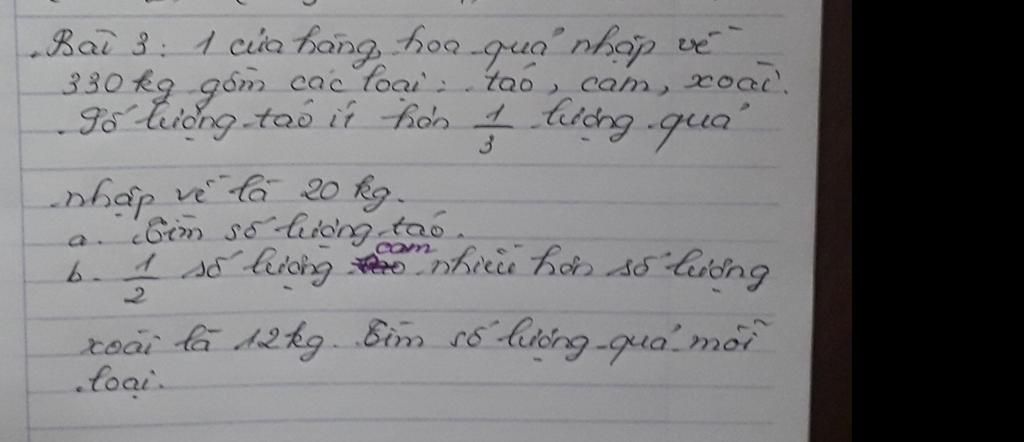 Bài 3: 1 cửa hàng hoa quả nhập về
330 kg gồm các loại: táo, cam, xoài.
Số lượng táo ít hơn 1/3 lượng quả
nhập về là 20 kg.
a. Tìm số lượng táo.
b. 1/2 số lượng cam nhiều hơn số lượng
xoài là 12kg. Tìm số lượng quả mỗi
loại.